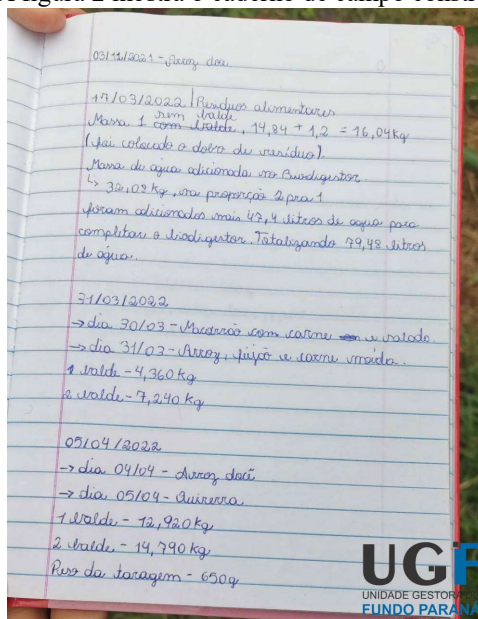 03/11/2021 - Arroz doce
17/03/2022 | Resíduos alimentares
sem balde
Massa 1 com balde, 14,84 + 1,2 = 16,04kg
(foi colocado o dobro de resíduo).
Massa de água adicionada no Biodigestor.
↳ 32,08kg, na proporção 2 pra 1
foram adicionados mais 47,4 litros de agua para
completar o biodigestor. Totalizando 79,48 litros
de água.
31/03/2022
→ dia 30/03 - Macarrão com carne e salada.
→ dia 31/03 - Arroz, feijão e carne moida.
1 balde - 4,360kg
2 balde - 7,240kg
05/04/2022
→ dia 04/04 - Arroz doce
→ dia 05/04 - Quirerra
1 balde - 12,920kg
2 balde - 14,790kg
Peso da taragem - 650g
UGF
UNIDADE GESTORA
FUNDO PARANÁ